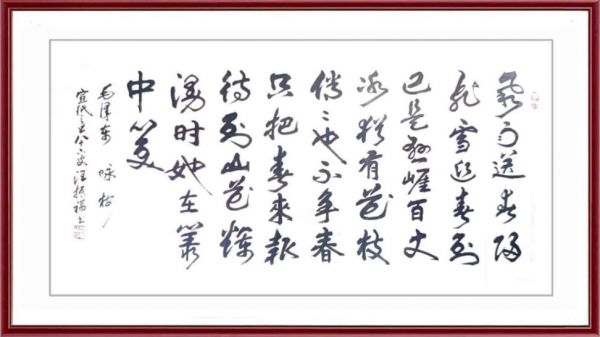 风雨送春归
飞雪迎春到
已是悬崖百丈
冰犹有花枝
俏〻也不争春
只把春来报
待到山花烂
漫时她在丛
中笑
毛泽东 咏梅
宣纸之